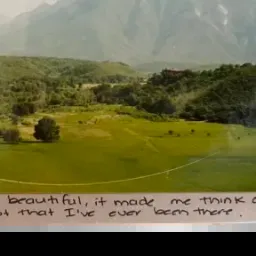 beautiful, it made me think
that I've ever been there.